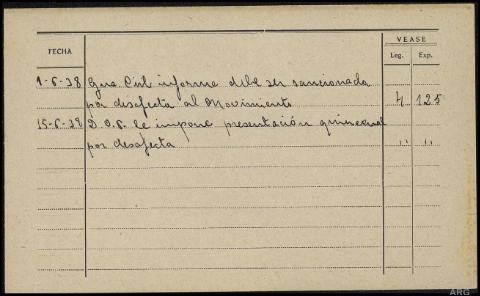 VEASE
FECHA
Leg. Exp.
1-6-38 Gua Civil informe debe ser sancionada
por desafecta al Movimiento 4 125
15-6-38 D. O. P. le impone presentación quincenal
por desafecta " "
ARG